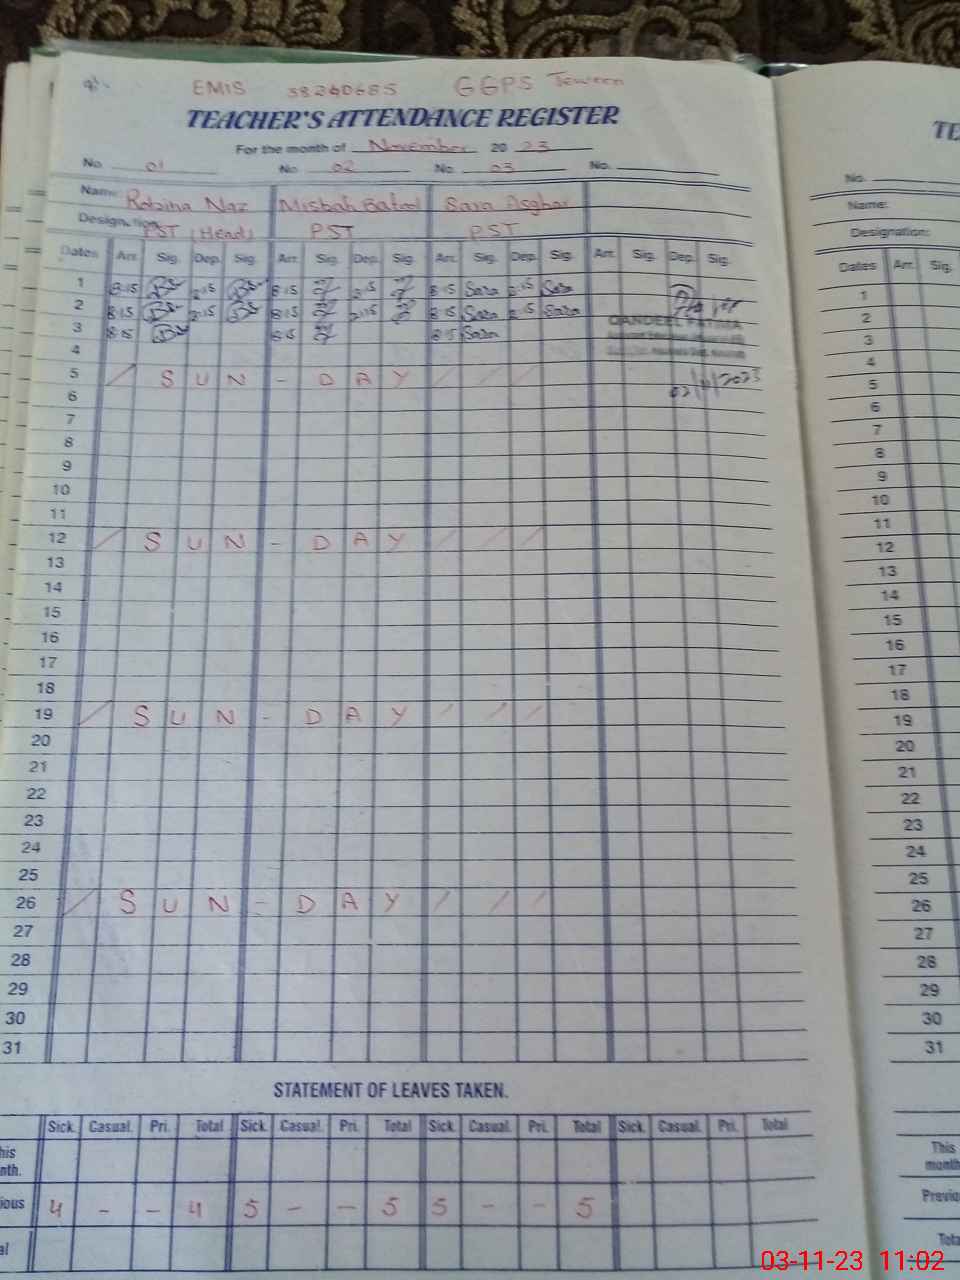 EMIS 38240685 GGPS
TEACHER'S ATTENDANCE REGISTER
For the month of November 20 23
No. 01 No. 02 No. 03 No.
Name Robina Naz Misbah Batool Sara Asghar
Designation PST (Head) PST PST
Dates Arr. Sig. Dep. Sig. Arr. Sig. Dep. Sig. Arr. Sig. Dep. Sig. Arr. Sig. Dep. Sig.
1 8:15 2:15 8:15 2:15 8:15 Sara 2:15 Sara
2 8:15 2:15 8:15 2:15 8:15 Sara 2:15 Sara
QANDEEL FATIMA
3 8:15 8:15 8:15 Sara
4
5 SUN - DAY
02/11/2023
6
7
8
9
10
11
12 SUN - DAY
13
14
15
16
17
18
19 SUN - DAY
20
21
22
23
24
25
26 SUN - DAY
27
28
29
30
31
STATEMENT OF LEAVES TAKEN.
Sick. Casual. Pri. Total Sick. Casual. Pri. Total Sick. Casual. Pri. Total Sick. Casual. Pri. Total
his
nth.
ious 4 - - 4 5 - - 5 5 - - 5
al
TE
No.
Name:
Designation:
Dates Arr. Sig.
1
2
3
4
5
6
7
8
9
10
11
12
13
14
15
16
17
18
19
20
21
22
23
24
25
26
27
28
29
30
31
This
month
Previo
Tota
03-11-23 11:02